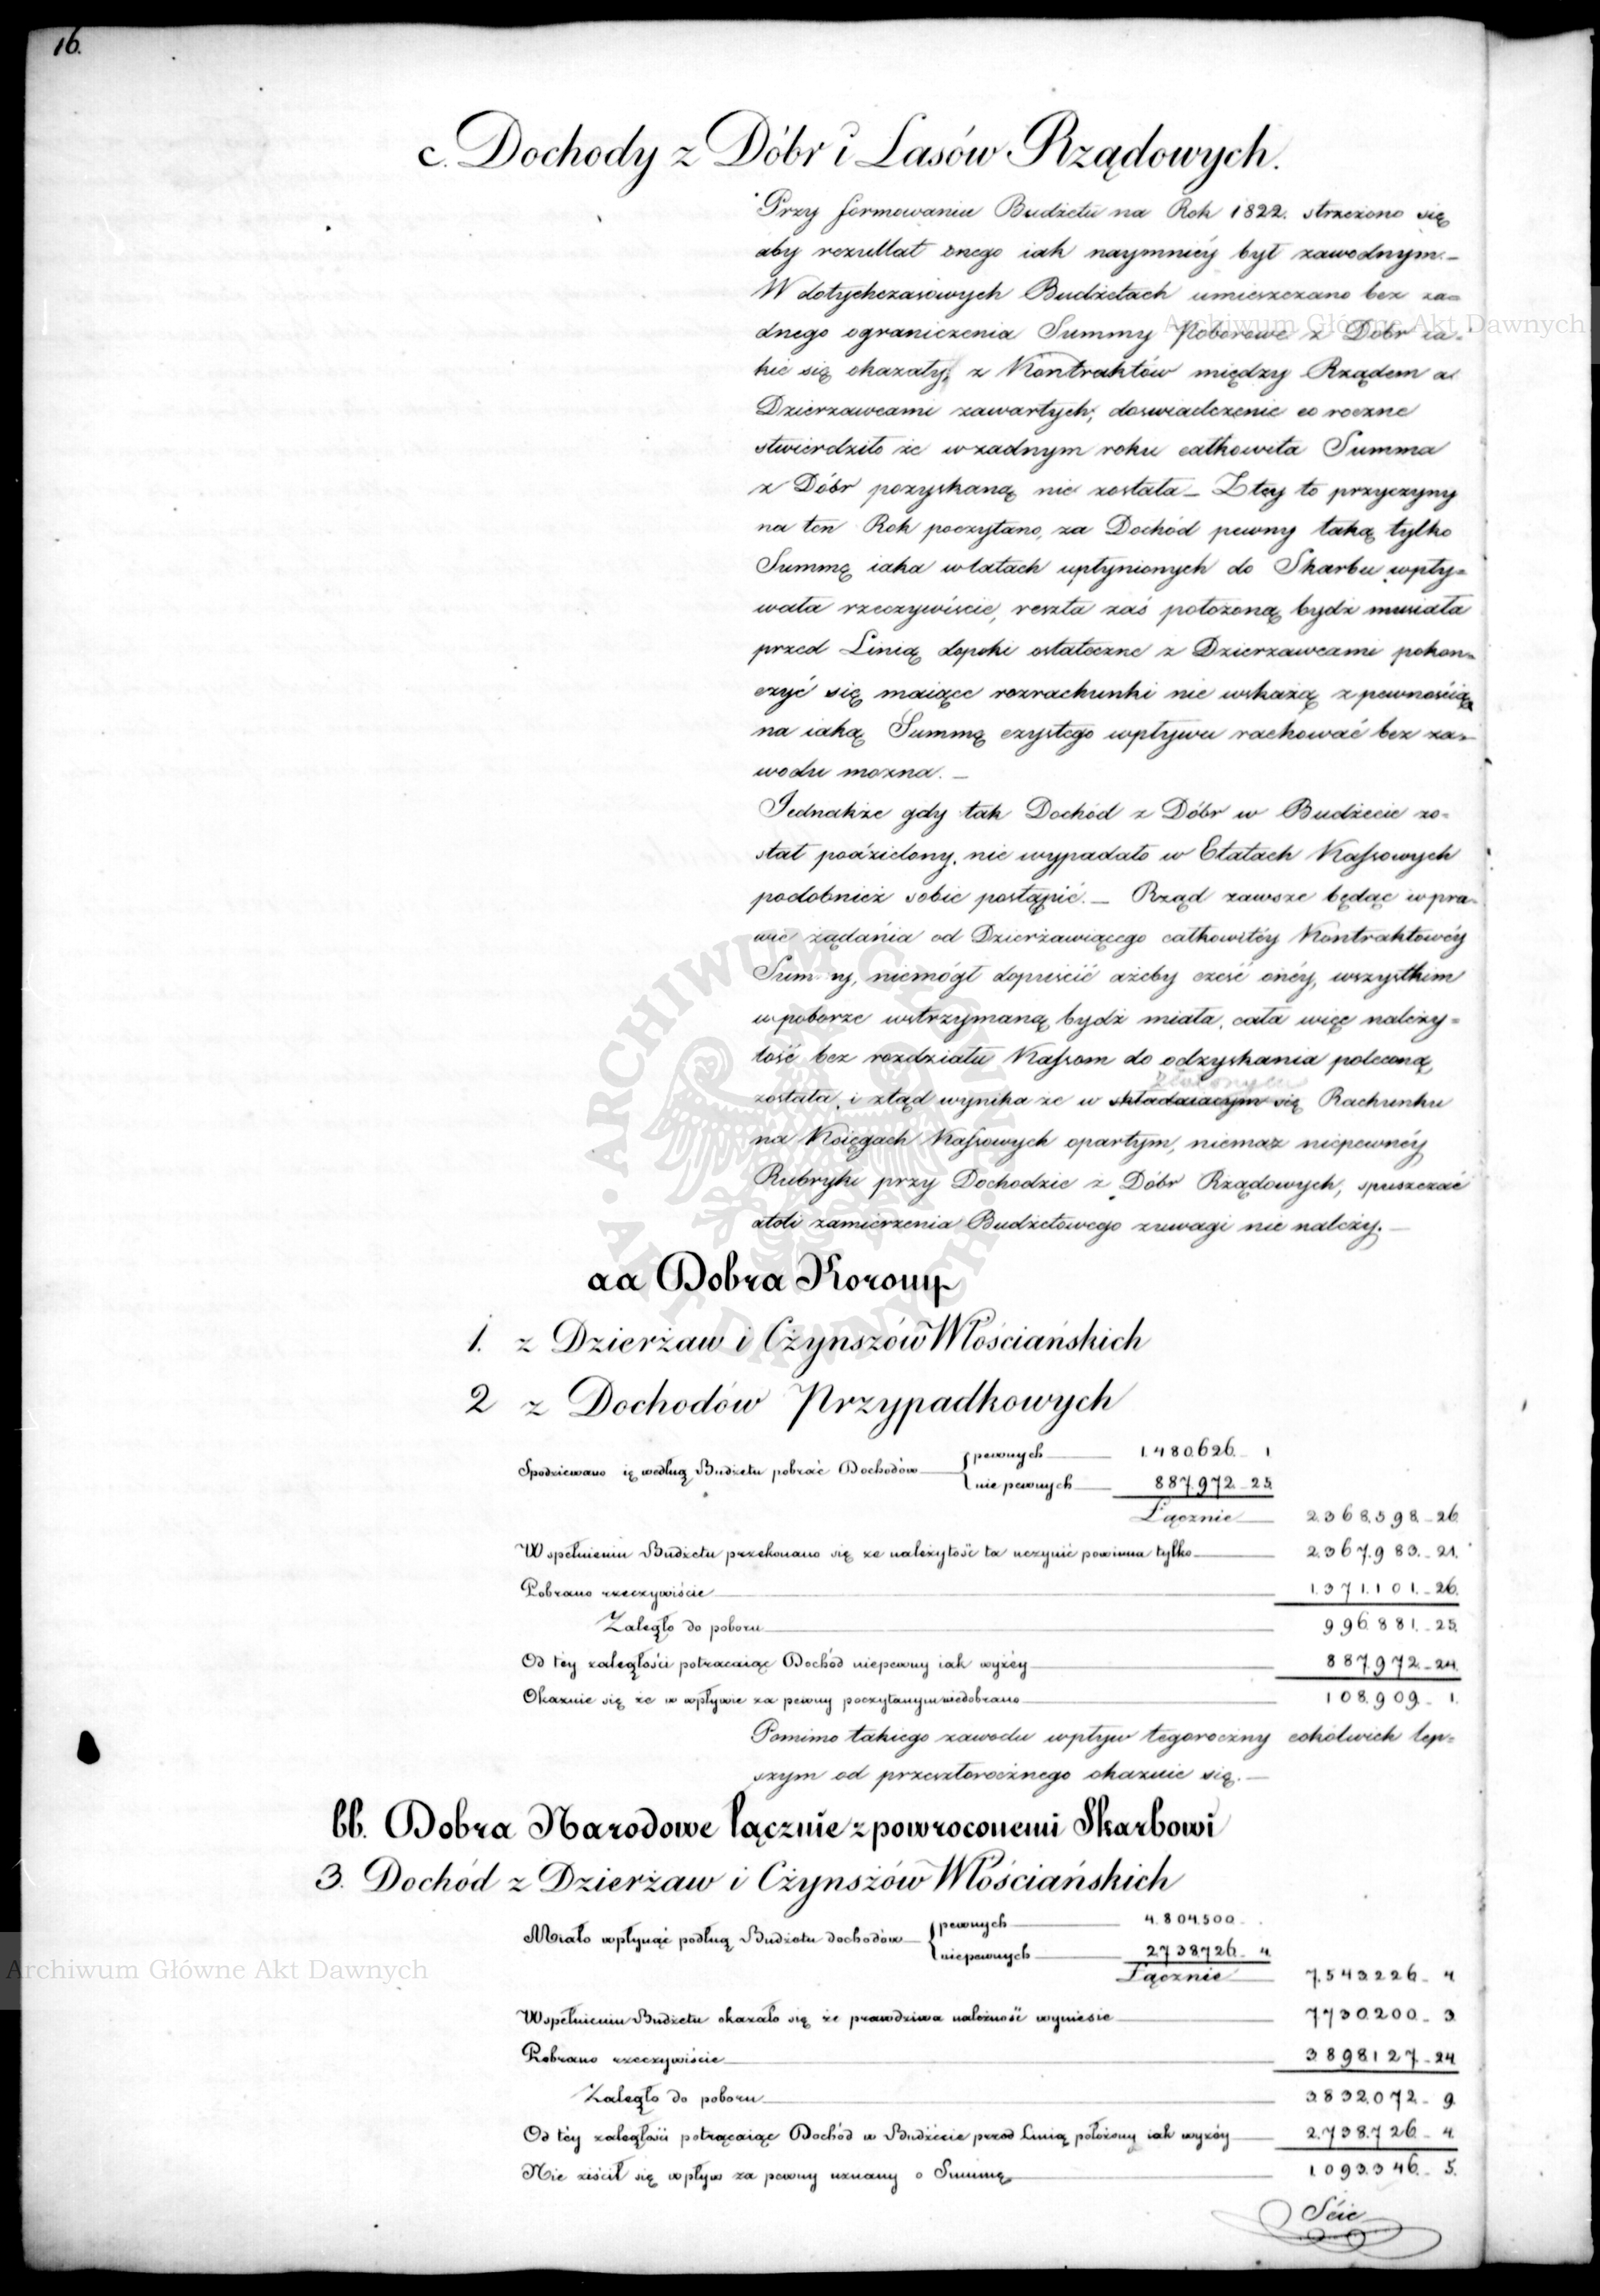 16.
c. Dochody z Dóbr i Lasów Rządowych.
Przy formowaniu Budżetu na Rok 1822. strzeżono się
aby rezultat onego iak naymniéy był zawodnym. _
W dotychczasowych Budżetach umieszczano bez ża=
dnego ograniczenia Summy Poborowe z Dóbr ia=
kie się okazały, z Kontraktów między Rządem a
Dzierzawcami zawartych; doswiadczenie co roczne
stwierdziło że w żadnym roku całkowita Summa
z Dóbr pozyskaną nie została _ Z tey to przyczyny
na ten Rok poczytano, za Dochód pewny taką tylko
Summę iaka w latach upłynionych do Skarbu wpły=
wała rzeczywiście, reszta zaś położoną bydź musiała
przed Linią dopoki ostateczne z Dzierzawcami pokon=
czyć się maiące rozrachunki nie wskażą z pewnością
na iaką Summę czystego wpływu rachować bez za=
wodu mozna. _
Jednakże gdy tak Dochód z Dóbr w Budżecie zo=
stał podzielony, nie wypadało w Etatach Kassowych
podobnież sobie postąpić. _ Rząd zawsze będąc w pra=
wie żądania od Dzierżawiącego całkowitéy Kontraktowéy
Summy, niemógł dopuścić ażeby cześć onéy, wszystkim
w poborze wstrzymaną bydź miała, cała więc należy=
tość bez rozdziału Kassom do odzyskania poleconą
została, i ztąd wynika że w składaiacym się Rachunku
złożonym
na Księgach Kassowych opartym, niemaz niepewnéy
Rubryki przy Dochodzie z Dóbr Rządowych, spuszczać
atoli zamierzenia Budżetowego z uwagi nie należy. _
aa Dobra Korony
1. z Dzierżaw i Czynszów Włościańskich
2 z Dochodów Przypadkowych
Spodziewano ię według Budżetu pobrać Dochodów { pewnych 1.480.626. _ 1
{ nie pewnych 887.972. _ 25.
Łącznie 2.368.598. _ 26.
W spełnieniu Budżetu przekonano się ze należytość ta uczynić powinna tylko 2.367.983. _ 21.
Pobrano rzeczywiście 1.371.101. _ 26.
Zaległo do poboru 996.881. _ 25.
Od téy zaległości potrącaiąc Dochód niepewny iak wyżéy 887.972 _ 24.
Okazuie się że w wpływie za pewny poczytanym niedobrano 108.909. _ 1.
Pomimo takiego zawodu wpływ tegoroczny cokolwiek lep=
szym od przeszłorocznego okazuie się. _
bb. Dobra Narodowe łącznie z powroconemi Skarbowi
3. Dochód z Dzierżaw i Czynszów Włościańskich
Miało wpłynąć podług Budżetu dochodów { pewnych 4.804.500 _ .
{ niepewnych 2.738.726 _ 4.
Łącznie 7.543.226 _ 4
W spełnieniu Budżetu okazało się że prawdziwa należność wyniesie 7.730.200. _ 3.
Pobrano rzeczywiście 3.898.127. _ 24
Zaległo do poboru 3.832.072 _ 9.
Od téy zaległości potrącaiąc Dochód w Budżecie przed Linią położony iak wyżéy 2.738.726 _ 4.
Nie ziścił się wpływ za pewny uznany o Summę 1.093.346. _ 5.
Archiwum Główne Akt Dawnych
Archiwum Główne Akt Dawnych
ARCHIWUM GŁÓWNE AKT DAWNYCH